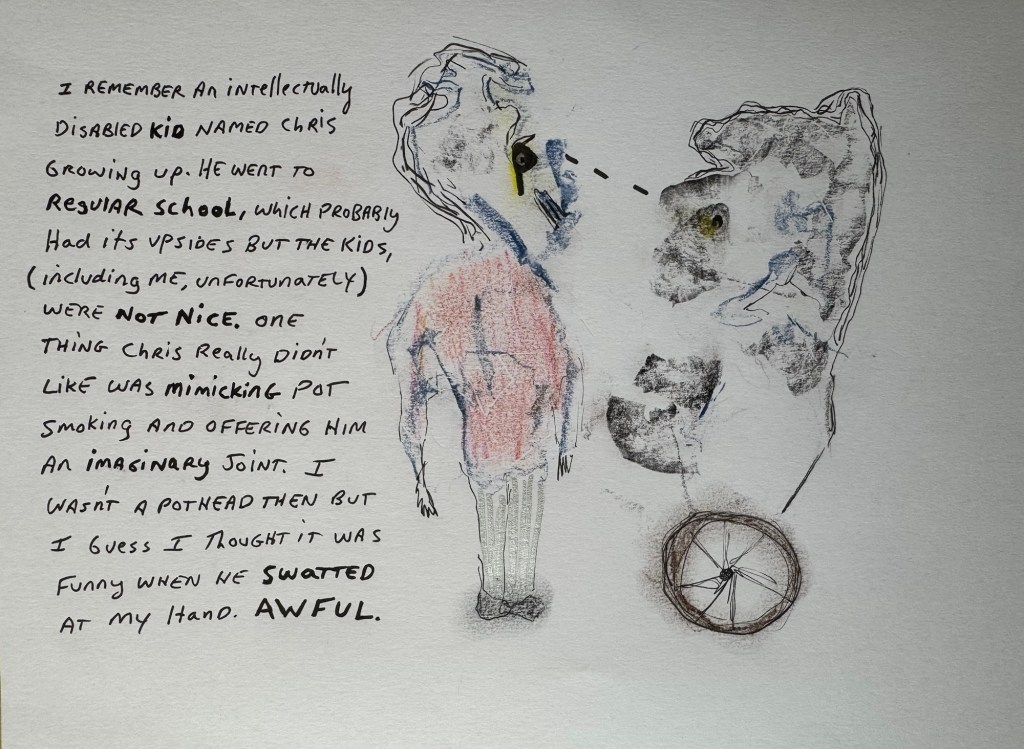 I REMEMBER AN intellectually
DISABLED KID NAMED CHRIS
GROWING UP. HE WENT TO
REGULAR SCHOOL, WHICH PROBABLY
HAD ITS UPSIDES BUT THE KIDS,
(including ME, UNFORTUNATELY)
WERE NOT NICE. ONE
THING CHRIS REALLY DIDN'T
LIKE WAS MIMICKING POT
SMOKING AND OFFERING HIM
AN IMAGINARY JOINT. I
WASN'T A POTHEAD THEN BUT
I GUESS I THOUGHT IT WAS
FUNNY WHEN HE SWATTED
AT MY HAND. AWFUL.